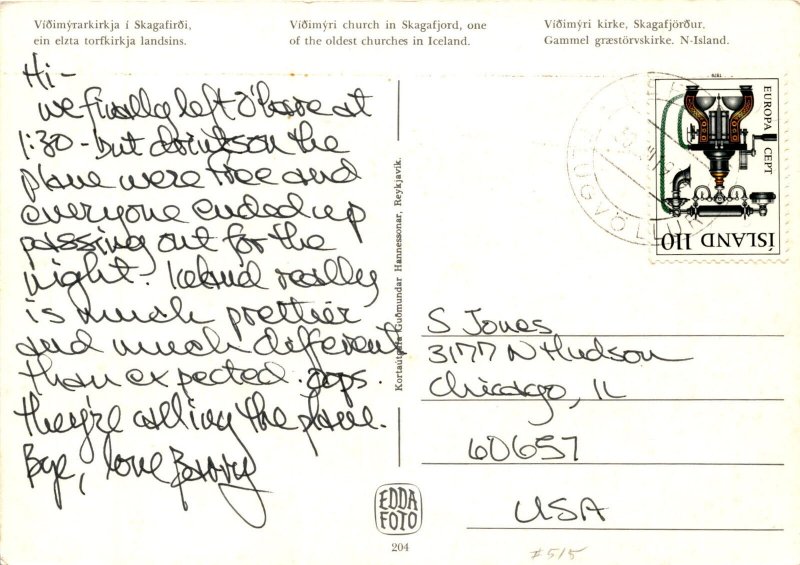 Víðimýrarkirkja í Skagafirði,
ein elzta torfkirkja landsins.
Víðimýri church in Skagafjord, one
of the oldest churches in Iceland.
Víðimýri kirke, Skagafjörður,
Gammel græstörvskirke. N-Island.
Hi-
we finally left O'hare at
1:30 - but drinks on the
plane were free and
everyone ended up
passing out for the
night. Iceland really
is much prettier
and much different
than expected. oops.
they're calling the plane.
Bye, love
Kortaútgáfa Guðmundar Hannessonar, Reykjavik.
1979
EUROPA CEPT
ÍSLAND 110
S Jones
3177 N Hudson
Chicago, IL
60657
USA
EDDA
FOTO
204
#515